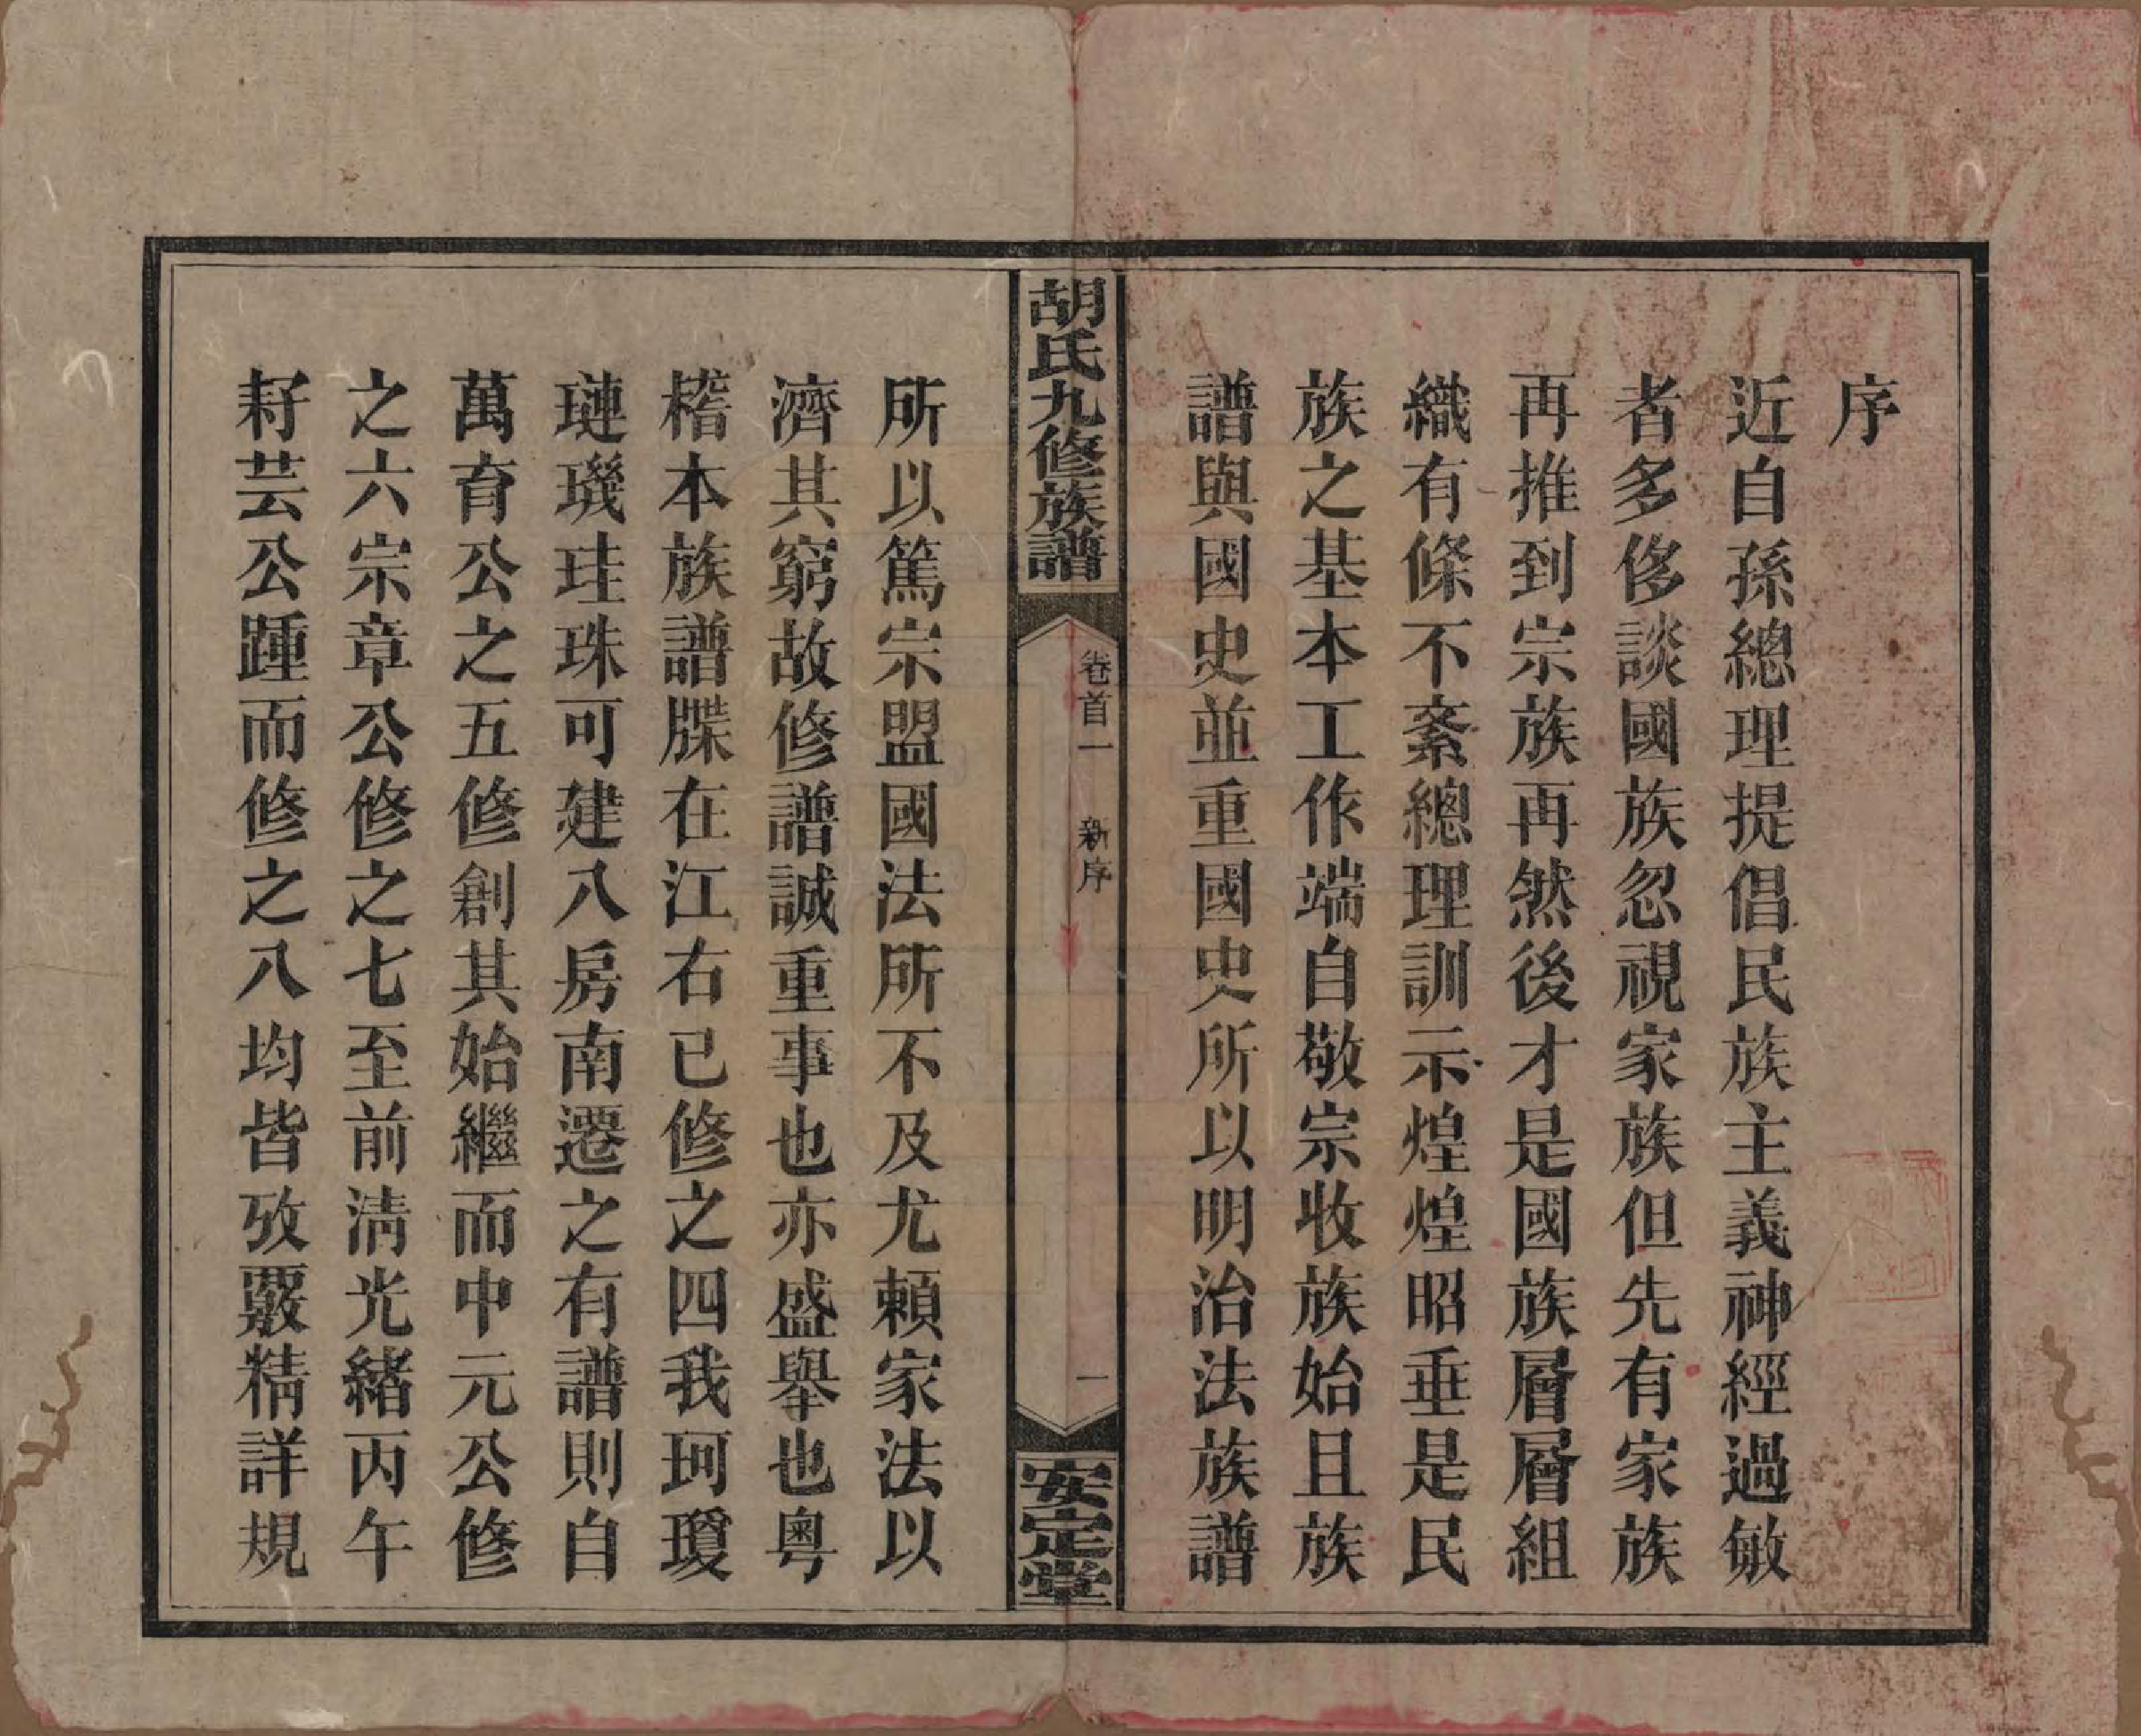 序
近自孫總理提倡民族主義神經過敏
者多侈談國族忽視家族但先有家族
再推到宗族再然後才是國族層層組
織有條不紊總理訓示煌煌昭垂是民
族之基本工作端自敬宗收族始且族
譜與國史並重國史所以明治法族譜
胡氏九修族譜
卷首一 新序
一
安定堂
所以篤宗盟國法所不及尤賴家法以
濟其窮故修譜誠重事也亦盛舉也粵
稽本族譜牒在江右已修之四我珂瓊
璉璣珪珠可建八房南遷之有譜則自
萬育公之五修創其始繼而中元公修
之六宗章公修之七至前淸光緒丙午
耔芸公踵而修之八均皆攷覈精詳規